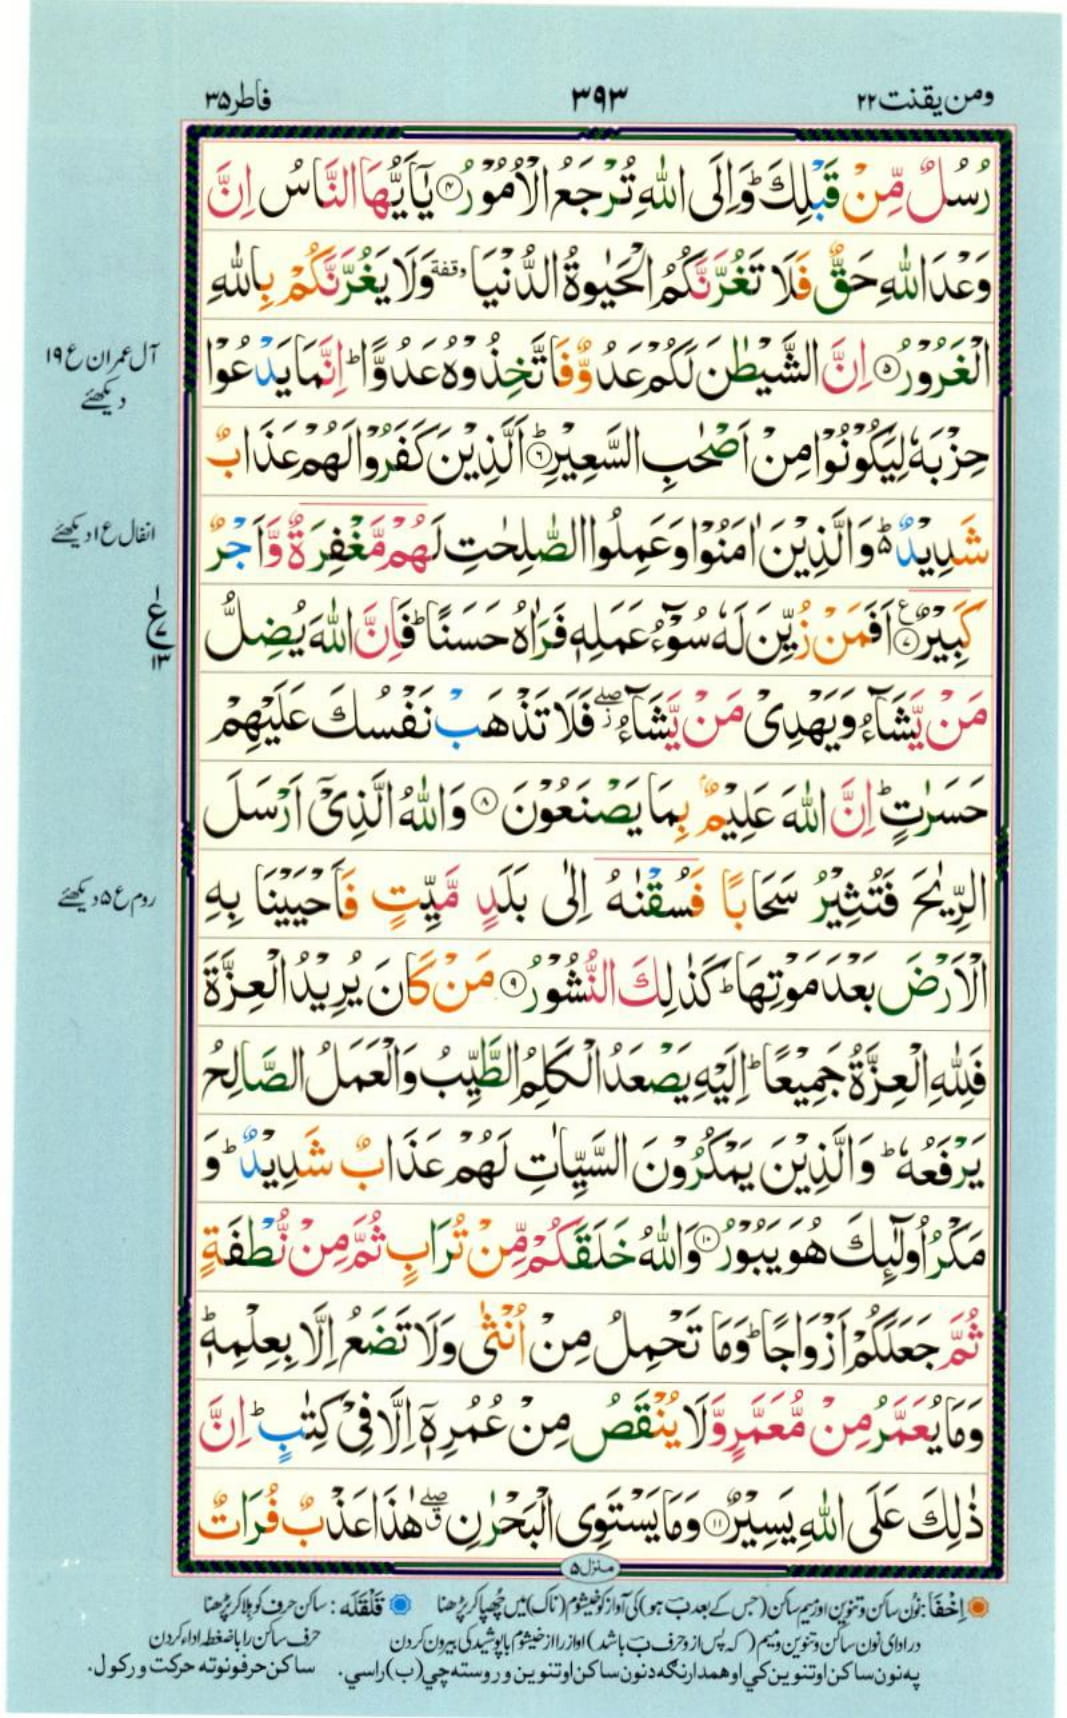 ومن یقنت ۲۲
۳۹۳
فاطر ۳۵
رُسُلٌ مِّنْ قَبْلِكَ ؕ وَاِلَى اللّٰهِ تُرْجَعُ الْاُمُوْرُ ۴ يٰۤاَيُّهَا النَّاسُ اِنَّ
وَعْدَ اللّٰهِ حَقٌّ فَلَا تَغُرَّنَّكُمُ الْحَيٰوةُ الدُّنْيَا وقفة وَلَا يَغُرَّنَّكُمْ بِاللّٰهِ
الْغَرُوْرُ ۵ اِنَّ الشَّيْطٰنَ لَكُمْ عَدُوٌّ فَاتَّخِذُوْهُ عَدُوًّا ؕ اِنَّمَا يَدْعُوْا
حِزْبَهٗ لِيَكُوْنُوْا مِنْ اَصْحٰبِ السَّعِيْرِ ؕ ۶ اَلَّذِيْنَ كَفَرُوْا لَهُمْ عَذَابٌ
شَدِيْدٌ ؕ۵ وَالَّذِيْنَ اٰمَنُوْا وَعَمِلُوا الصّٰلِحٰتِ لَهُمْ مَّغْفِرَةٌ وَّاَجْرٌ
كَبِيْرٌ ۷ ع اَفَمَنْ زُيِّنَ لَهٗ سُوْٓءُ عَمَلِهٖ فَرَاٰهُ حَسَنًا ؕ فَاِنَّ اللّٰهَ يُضِلُّ
مَنْ يَّشَآءُ وَيَهْدِىْ مَنْ يَّشَآءُ ۖز فَلَا تَذْهَبْ نَفْسُكَ عَلَيْهِمْ
حَسَرٰتٍ ؕ اِنَّ اللّٰهَ عَلِيْمٌۢ بِمَا يَصْنَعُوْنَ ۸ وَاللّٰهُ الَّذِىْۤ اَرْسَلَ
الرِّيٰحَ فَتُثِيْرُ سَحَابًا فَسُقْنٰهُ اِلٰى بَلَدٍ مَّيِّتٍ فَاَحْيَيْنَا بِهِ
الْاَرْضَ بَعْدَ مَوْتِهَا ؕ كَذٰلِكَ النُّشُوْرُ ۹ مَنْ كَانَ يُرِيْدُ الْعِزَّةَ
فَلِلّٰهِ الْعِزَّةُ جَمِيْعًا ؕ اِلَيْهِ يَصْعَدُ الْكَلِمُ الطَّيِّبُ وَالْعَمَلُ الصَّالِحُ
يَرْفَعُهٗ ؕ وَالَّذِيْنَ يَمْكُرُوْنَ السَّيِّاٰتِ لَهُمْ عَذَابٌ شَدِيْدٌ ؕ وَ
مَكْرُ اُولٰٓئِكَ هُوَ يَبُوْرُ ۱۰ وَاللّٰهُ خَلَقَكُمْ مِّنْ تُرَابٍ ثُمَّ مِنْ نُّطْفَةٍ
ثُمَّ جَعَلَكُمْ اَزْوَاجًا ؕ وَمَا تَحْمِلُ مِنْ اُنْثٰى وَلَا تَضَعُ اِلَّا بِعِلْمِهٖ ؕ
وَمَا يُعَمَّرُ مِنْ مُّعَمَّرٍ وَّلَا يُنْقَصُ مِنْ عُمُرِهٖۤ اِلَّا فِىْ كِتٰبٍ ؕ اِنَّ
ذٰلِكَ عَلَى اللّٰهِ يَسِيْرٌ ۱۱ وَمَا يَسْتَوِى الْبَحْرٰنِ ۖق هٰذَا عَذْبٌ فُرَاتٌ
آل عمران ع ۱۹
دیکھئے
انفال ع ۱ دیکھئے
ع
۷
۱۳
روم ع ۵ دیکھئے
منزل ۵
اِخْفَا: نون ساکن و تنوین اور میم ساکن (جس کے بعد ب ہو) کی آواز کو خیشوم (ناک) میں چھپا کر پڑھنا
قَلْقَلَه: ساکن حرف کو ہلا کر پڑھنا
در ادای نون ساکن و تنوین و میم (که پس از و حرف ب باشد) آواز را از خیشوم با پوشیدگی بیرون کردن
حرف ساکن را با ضغطه اداء کردن
په نون ساکن او تنوین کي او همدارنگه د نون ساکن او تنوین وروسته چي (ب) راسي.
ساکن حرفونو ته حرکت ورکول.